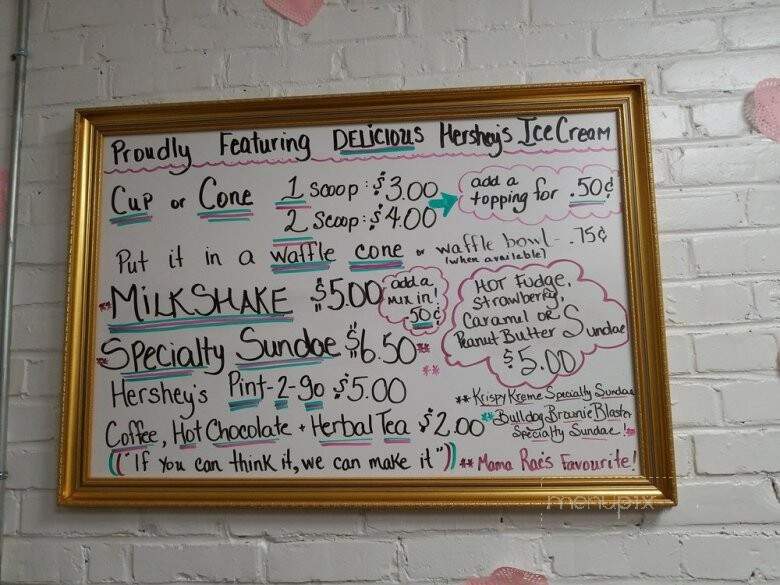 Proudly Featuring DELICIOUS Hershey's Ice Cream
Cup or Cone 1 Scoop: $3.00
2 Scoop: $4.00
add a
topping for .50¢
Put it in a waffle cone or waffle bowl - .75¢
(when available)
MILKSHAKE $5.00
add a
mix in!
.50¢
HOT Fudge,
Strawberry,
Caramel OR
Peanut Butter Sundae
$5.00
Specialty Sundae $6.50 **
**
Hershey's Pint-2-go $5.00
Coffee, Hot Chocolate + Herbal Tea $2.00
("If you can think it, we can make it")
** Krispy Kreme Specialty Sundae
** Bulldog Brownie Blaster
Specialty Sundae! **
** Mama Rae's Favourite!
menupix